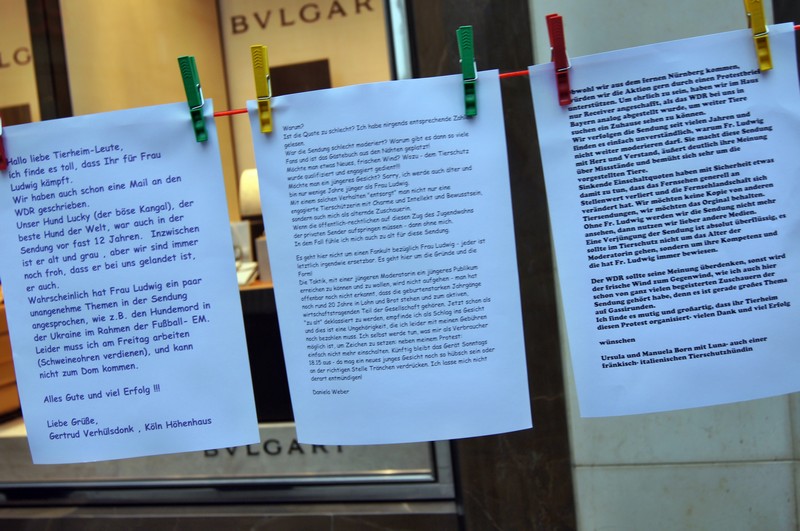 BVLGAR
LG
Hallo liebe Tierheim-Leute,
ich finde es toll, dass Ihr für Frau
Ludwig kämpft.
Wir haben auch schon eine Mail an den
WDR geschrieben.
Unser Hund Lucky (der böse Kangal), der
beste Hund der Welt, war auch in der
Sendung vor fast 12 Jahren. Inzwischen
ist er alt und grau , aber wir sind immer
noch froh, dass er bei uns gelandet ist,
er auch.
Wahrscheinlich hat Frau Ludwig ein paar
unangenehme Themen in der Sendung
angesprochen, wie z.B. den Hundemord in
der Ukraine im Rahmen der Fußball- EM.
Leider muss ich am Freitag arbeiten
(Schweineohren verdienen), und kann
nicht zum Dom kommen.
Alles Gute und viel Erfolg !!!
Liebe Grüße,
Gertrud Verhülsdonk , Köln Höhenhaus
Warum?
Ist die Quote zu schlecht? Ich habe nirgends entsprechende Zahl
gelesen.
War die Sendung schlecht moderiert? Warum gibt es dann so viele
Fans und ist das Gästebuch aus den Nähten geplatzt!
Möchte man etwas Neues, frischen Wind? Wozu - dem Tierschutz
wurde qualifiziert und engagiert gedient!!
Möchte man ein jüngeres Gesicht? Sorry, ich werde auch älter und
bin nur wenige Jahre jünger als Frau Ludwig.
Mit einem solchen Verhalten "entsorgt" man nicht nur eine
engagierte Tierschützerin mit Charme und Intellekt und Bewusstsein,
sondern auch mich als alternde Zuschauerin.
Wenn die öffentlich-rechtlichen auf diesen Zug des Jugendwahns
der privaten Sender aufspringen müssen - dann ohne mich.
In dem Fall fühle ich mich auch zu alt für diese Sendung.
Es geht hier nicht um einen Fankult bezüglich Frau Ludwig - jeder ist
letztlich irgendwie ersetzbar. Es geht hier um die Gründe und die
Form!
Die Taktik, mit einer jüngeren Moderatorin ein jüngeres Publikum
erreichen zu können und zu wollen, wird nicht aufgehen - man hat
offenbar noch nicht erkannt, dass die geburtenstarken Jahrgänge
noch rund 20 Jahre in Lohn und Brot stehen und zum aktiven,
wirtschaftstragenden Teil der Gesellschaft gehören. Jetzt schon als
"zu alt" deklassiert zu werden, empfinde ich als Schlag ins Gesicht
und dies ist eine Ungehörigkeit, die ich leider mit meinen Gebühren
noch bezahlen muss. Ich selbst werde tun, was mir als Verbraucher
möglich ist, um Zeichen zu setzen: neben meinem Protest
einfach nicht mehr einschalten. Künftig bleibt das Gerät Sonntags
18.15 aus - da mag ein neues junges Gesicht noch so hübsch sein oder
an der richtigen Stelle Tränchen verdrücken. Ich lasse mich nicht
derart entmündigen!
Daniela Weber
Obwohl wir aus dem fernen Nürnberg kommen,
würden wir die Aktion gern durch einen Protestbrief
unterstützen. Um ehrlich zu sein, haben wir im Haus
nur Receiver angeschafft, als das WDR bei uns in
Bayern analog abgestellt wurde, um weiter Tiere
suchen ein Zuhause sehen zu können.
Wir verfolgen die Sendung seit vielen Jahren und
finden es einfach unverständlich, warum Fr. Ludwig
nicht weiter moderieren darf. Sie macht diese Sendung
mit Herz und Verstand, äußert deutlich ihre Meinung
über Missstände und bemüht sich sehr um die
vorgestellten Tiere.
Sinkende Einschaltquoten haben mit Sicherheit etwas
damit zu tun, dass das Fernsehen generell an
Stellenwert verliert und die Fernsehlandschaft sich
verändert hat. Wir möchten keine Kopie von anderen
Tiersendungen, wir möchten das Orginal behalten.
Ohne Fr. Ludwig werden wir die Sendung nicht mehr
ansehen, dann nutzen wir lieber andere Medien.
Eine Verjüngung der Sendung ist absolut überflüssig, es
sollte im Tierschutz nicht um das Alter der
Moderatorin gehen, sondern um ihre Kompetenz und
die hat Fr. Ludwig immer bewiesen.
Der WDR sollte seine Meinung überdenken, sonst wird
der frische Wind zum Gegenwind, wie ich auch hier
schon von ganz vielen begeisterten Zuschauern der
Sendung gehört habe, denn es ist gerade großes Thema
auf Gassirunden.
Ich finde es mutig und großartig, dass ihr Tierheim
diesen Protest organisiert- vielen Dank und viel Erfolg
wünschen
Ursula und Manuela Born mit Luna- auch einer
fränkisch- italienischen Tierschutzhündin
BVLGARI